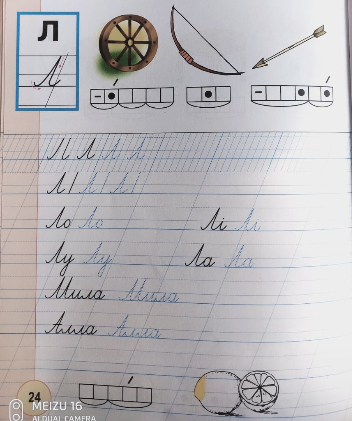 Л
Л
Л Л Л Л
Л Л Л
Ло Ло Лі Лі
Лу Лу Ла Ла
Мила Мила
Алла Алла
24
MEIZU 16
AI DUAL CAMERA